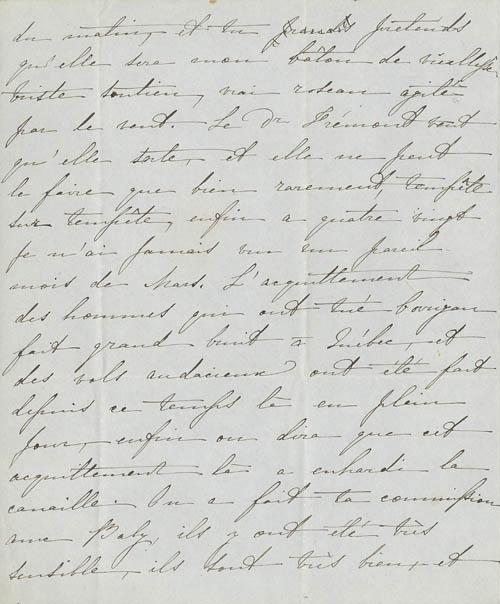 du matin, et tu prétends
qu'elle sera mon bâton de vieillesse
triste soutien, vrai roseau agité
par le vent. Le Dr Frémont veut
qu'elle sorte, et elle ne peut
le faire que bien rarement, tempête
sur tempête, enfin a quatre vingt
je n'ai jamais vu un pareil
mois de Mars. L'acquittement
des hommes qui ont tué Corrigan
fait grand bruit a Québec, et
des vols audacieux ont été fait
depuis ce temps là en plein
jour, enfin on dira que cet
acquittement là a enhardi la
canaille. On a fait ta commission
Baby, ils y ont été très
sensible, ils sont très bien, et